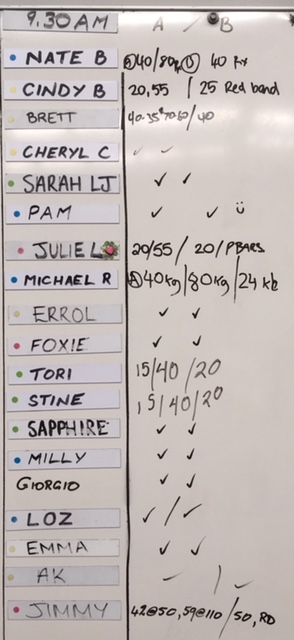 9.30AM A / B
NATE B 40/80kg 40 Rx
CINDY B 20,55 / 25 Red band
BRETT 40.35 70.60/40
CHERYL C ✓ ✓
SARAH LJ ✓ ✓
PAM ✓ ✓ ü
JULIE L 20/55 / 20/PBARS
MICHAEL R 40kg/80kg/24kb
ERROL ✓ ✓
FOXIE ✓ ✓
TORI 15/40/20
STINE 15/40/20
SAPPHIRE ✓ ✓
MILLY ✓ ✓
GIORGIO ✓ ✓
LOZ ✓/✓
EMMA ✓ ✓
AK ✓ / ✓
JIMMY 42@50,59@110/50,RD